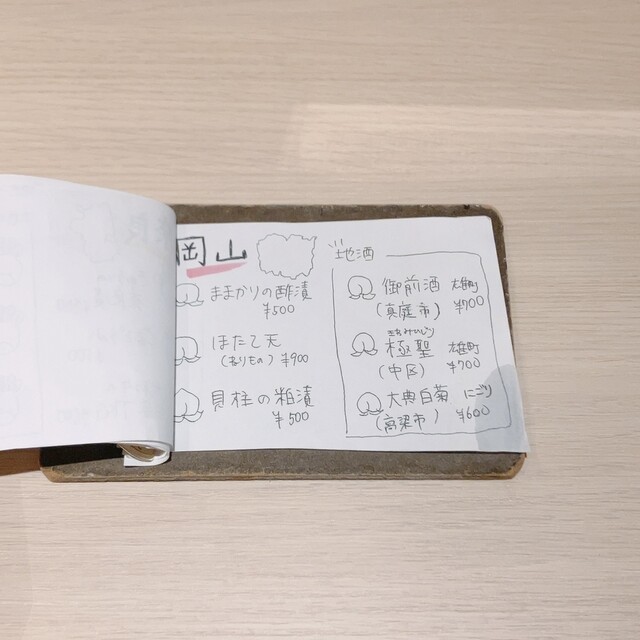 岡山
ままかりの酢漬
¥500
ほたて天
(ねりもの) ¥900
貝柱の粕漬
¥500
地酒
御前酒 雄町
(真庭市) ¥700
きわみひじり
極聖 雄町
(中区) ¥700
大典白菊 にごり
(高梁市) ¥600